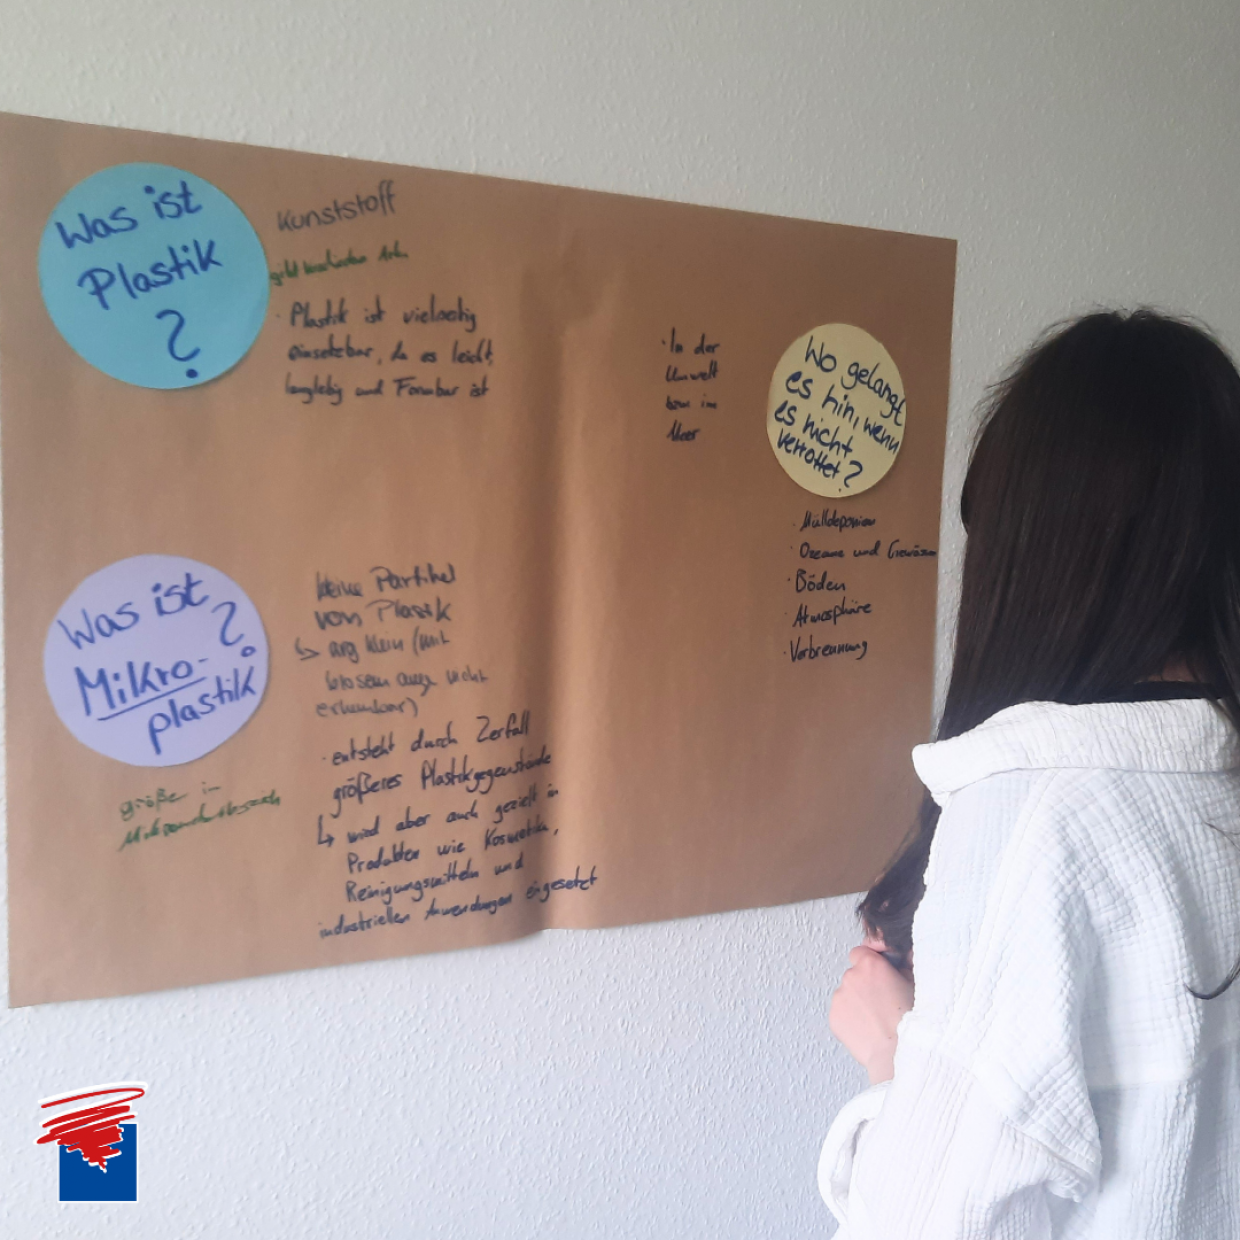 Was ist
Plastik
?
Kunststoff
· Plastik ist vielseitig
einsetzbar, da es leicht,
langlebig und Formbar ist
· In der
Umwelt
bzw im
Meer
Wo gelangt
es hin, wenn
es nicht
verrottet?
· Mülldeponien
· Ozeane und Gewässer
· Böden
· Atmosphäre
· Verbrennung
Was ist
?
Mikro-
plastik
kleine Partikel
von Plastik
↳ arg klein (mit
blosem auge nicht
erkennbar)
· entsteht durch Zerfall
größeres Plastikgegenstände
↳ wird aber auch gezielt in
Produkten wie Kosmetika,
Reinigungsmitteln und
industriellen Anwendungen eingesetzt
größe in